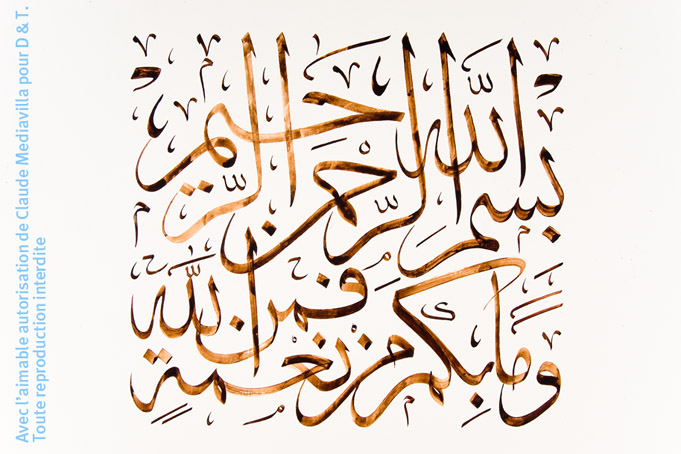 بسم الله الرحمن الرحيم
وما بكم من نعمة فمن الله
Avec l'aimable autorisation de Claude Mediavilla pour D & T.
Toute reproduction interdite